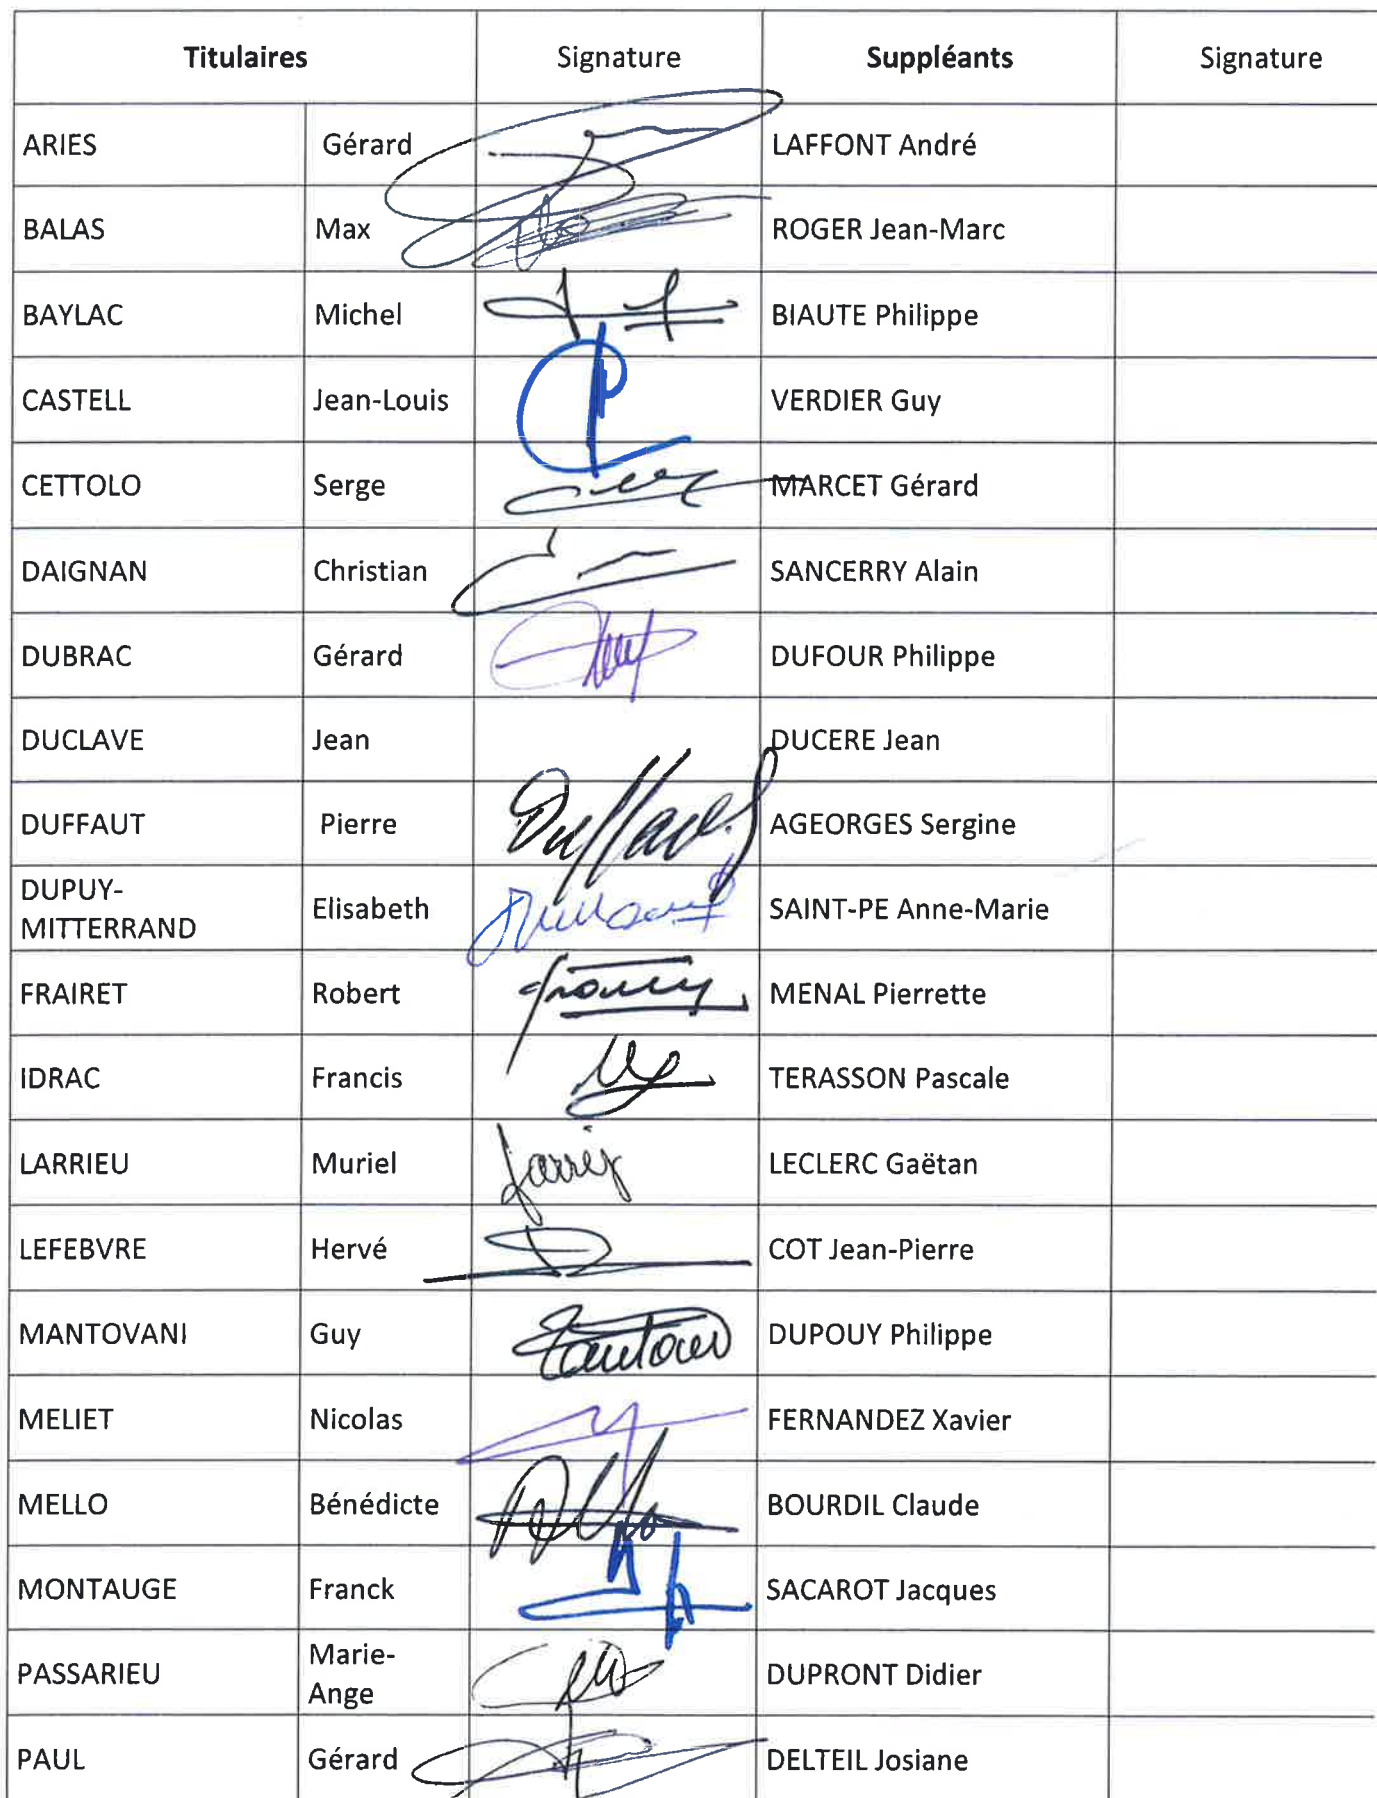 Titulaires Signature Suppléants Signature
ARIES Gérard LAFFONT André
BALAS Max ROGER Jean-Marc
BAYLAC Michel BIAUTE Philippe
CASTELL Jean-Louis VERDIER Guy
CETTOLO Serge MARCET Gérard
DAIGNAN Christian SANCERRY Alain
DUBRAC Gérard DUFOUR Philippe
DUCLAVE Jean DUCERE Jean
DUFFAUT Pierre AGEORGES Sergine
DUPUY-
MITTERRAND Elisabeth SAINT-PE Anne-Marie
FRAIRET Robert MENAL Pierrette
IDRAC Francis TERASSON Pascale
LARRIEU Muriel LECLERC Gaëtan
LEFEBVRE Hervé COT Jean-Pierre
MANTOVANI Guy DUPOUY Philippe
MELIET Nicolas FERNANDEZ Xavier
MELLO Bénédicte BOURDIL Claude
MONTAUGE Franck SACAROT Jacques
PASSARIEU Marie-
Ange DUPRONT Didier
PAUL Gérard DELTEIL Josiane